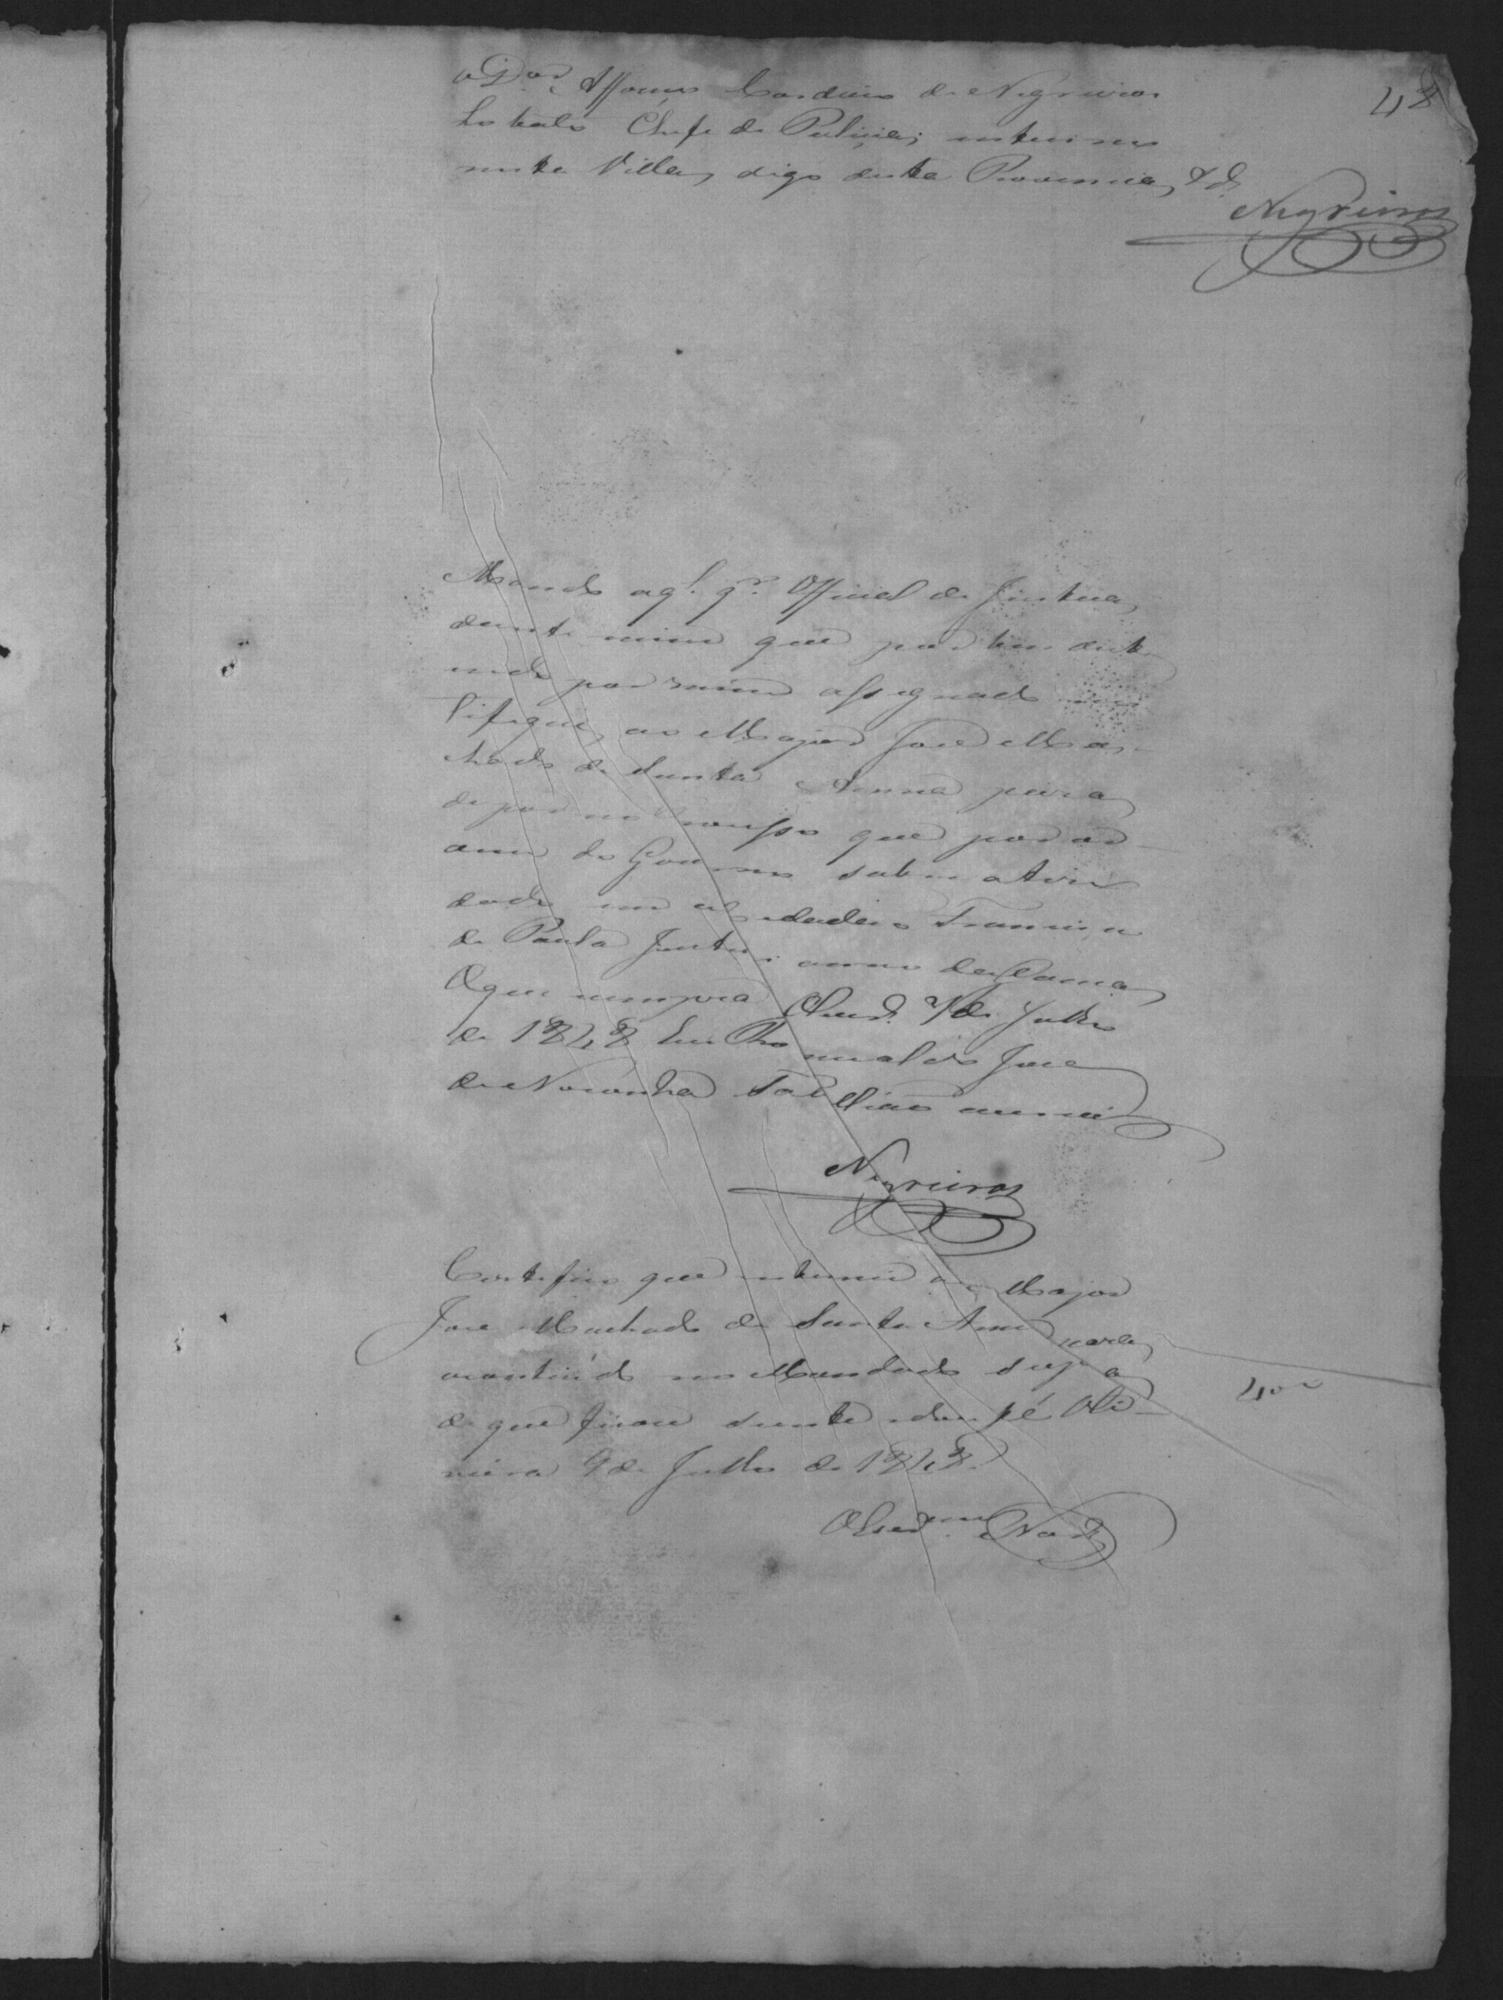 48
o D.or Affonço Cordeiro de Negreiros
Lobato Chefe de Policia, interino
nesta Villa, digo desta Provincia, &.
Negreiros
Mando a q.l q.r Official de Justica,
dante mim que por bem deste
indo por mim assignado no
tifique, ao Major Jose Ma-
chado de Santa Anna para
depor no processo que por or-
dem do Governo sobre a
dade Francisco
de Paula Justiniano da Gama,
O que cumpra 7 de Julho
de 1848 Eu Romualdo Jose
de Noronha Tabelliao escrevi
Negreiros
Certifico que intimei ao Major
Jose Machado de Santa Anna para
o contiudo no Mandado supra
de que ficou sciente e dou fé Oli-
veira 9 de Julho de 1848.
400